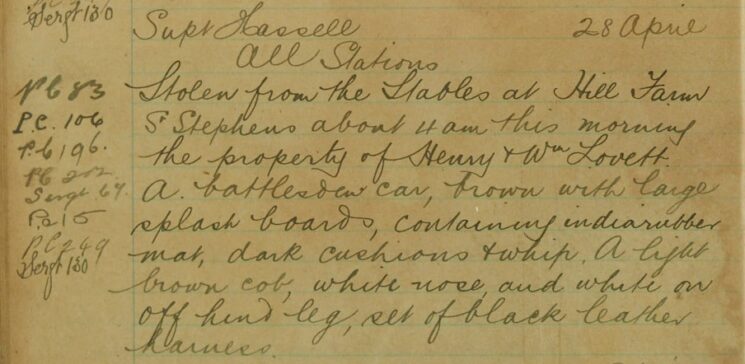 Sergt 130
Supt Hassell 28 April
All Stations
P.C 83 Stolen from the Stables at Hill Farm
P.C. 106 St Stephens about 4 am this morning
P.C 196. the property of Henry & Wm Lovett.
P.C 202
Sergt. 67. A. battlesden car, brown with large
P.C 15 splash boards, containing indiarubber
P.C 249 mat, dark cushions & whip, A light
Sergt 130 brown cob, white nose, and white on
off hind leg, set of black leather
harness.